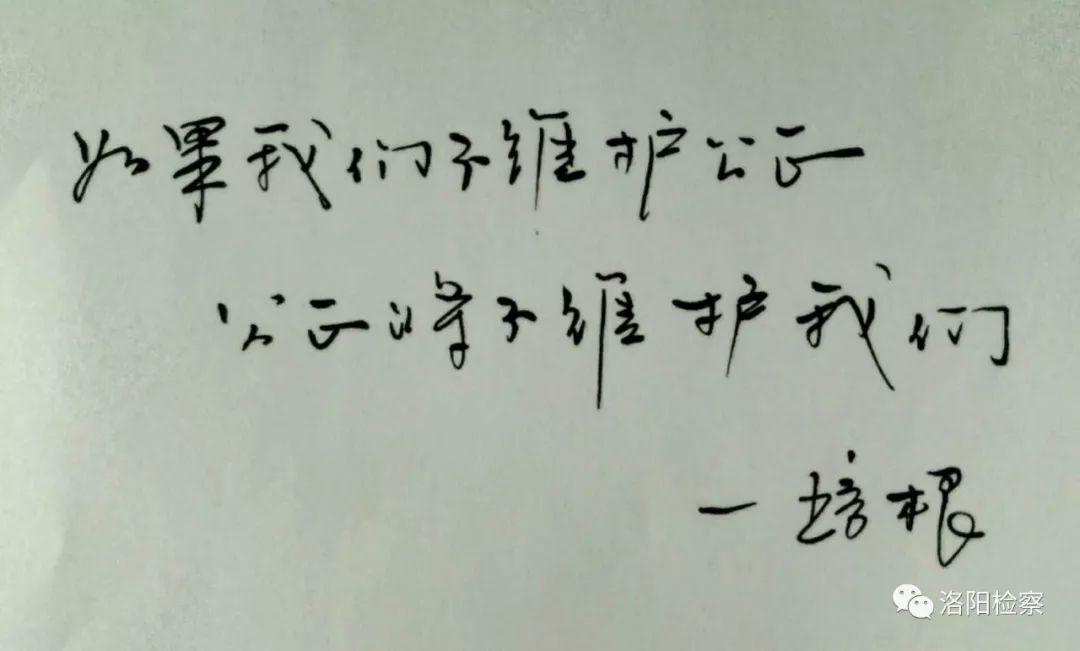 如果我们不维护公正
公正将不维护我们
—培根
洛阳检察